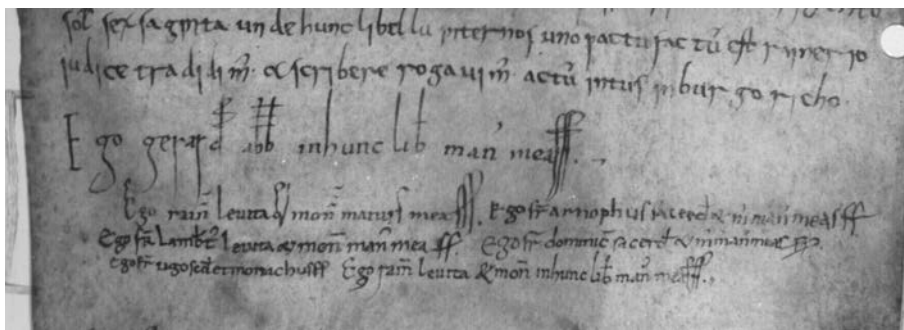 sol sex saginta unde hunc libellu inter nos uno pactu factu est rinerio
iudice tradidim & scribere rogavim actu intus in burgo richo
Ego gerard abb in hunc lib man mea ss.
Ego rain levita & mon manus mea sss. Ego fr arnophus sacerd & m man mea sff
Ego fr lambt levita & mon man mea ss. Ego fr dominic sacerd & m man mea
Ego fr ugo monachus ss Ego rain levita & mon in hunc lib man mea